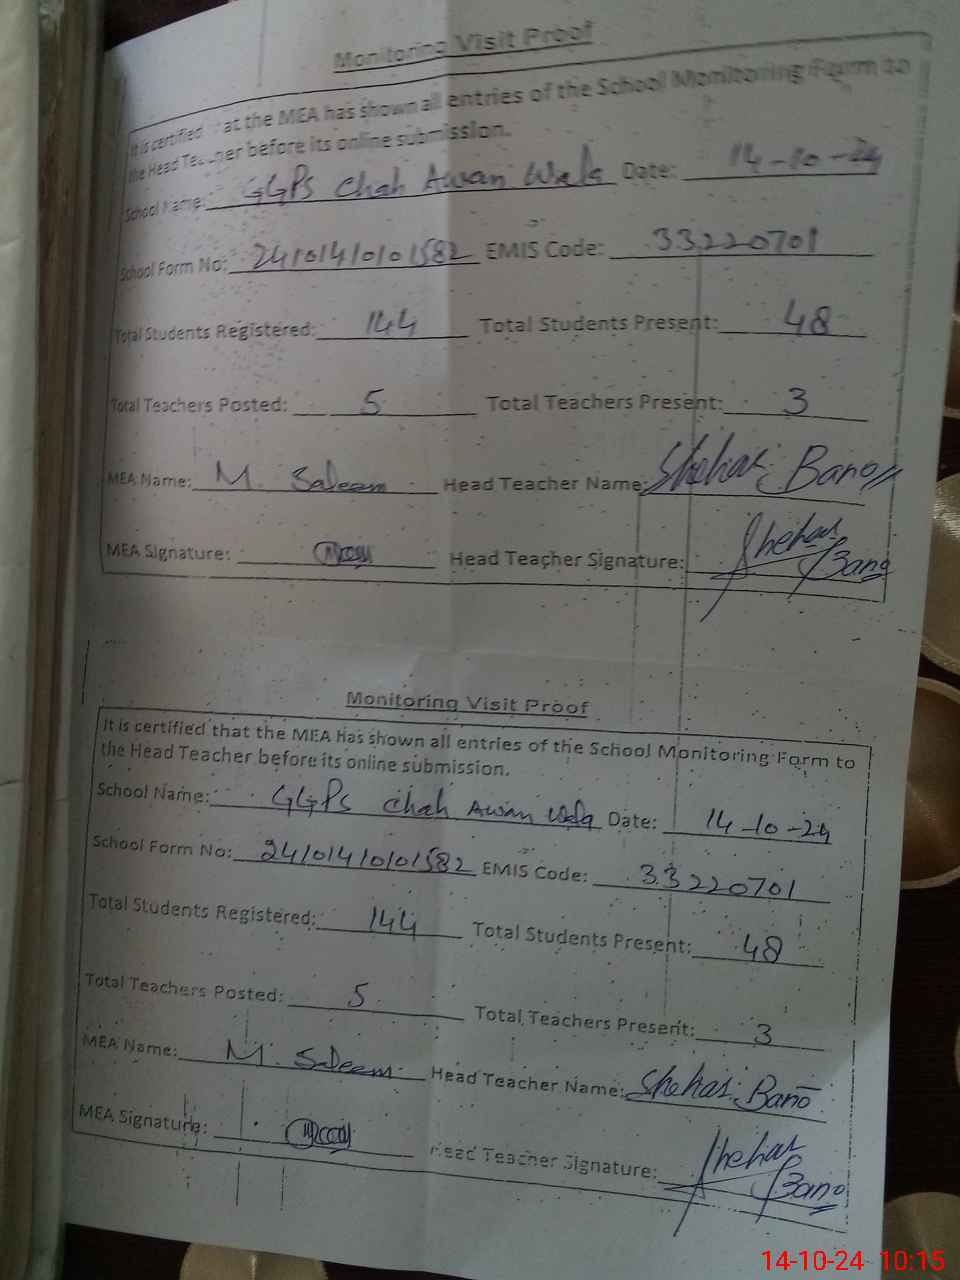 Monitoring Visit Proof
It is certified that the MEA has shown all entries of the School Monitoring Form to
the Head Teacher before its online submission.
School Name: GGPS Chah Awan Wala Date: 14-10-24
School Form No: 24101410101582 EMIS Code: 33220701
Total Students Registered: 144 Total Students Present: 48
Total Teachers Posted: 5 Total Teachers Present: 3
MEA Name: M. Saleem Head Teacher Name: Shehar Bano
MEA Signature: Head Teacher Signature: Shehar Bano
Monitoring Visit Proof
It is certified that the MEA has shown all entries of the School Monitoring Form to
the Head Teacher before its online submission.
School Name: GGPS Chah Awan Wala Date: 14-10-24
School Form No: 24101410101582 EMIS Code: 33220701
Total Students Registered: 144 Total Students Present: 48
Total Teachers Posted: 5 Total Teachers Present: 3
MEA Name: M. Saleem Head Teacher Name: Shehar Bano
MEA Signature: Head Teacher Signature: Shehar Bano
14-10-24 10:15